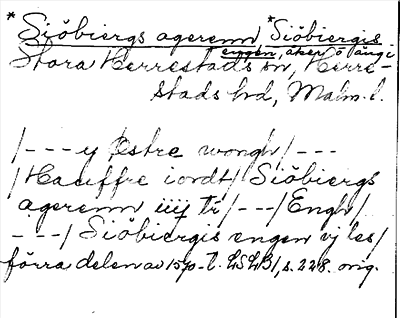 *Siöbiergs agerenn *Siöbiergis
engen, åker o äng i
Stora Herrestads sn, Herre-
stads hd, Malm. l.
/---y Østre wongh/---
/Haeffre iordt/Siöbiergs
agerenn iiij tr/---/Engh/
---/Siöbiergis engen vj les/
förra delen av 1570-t. LSLB1, s. 228. orig.